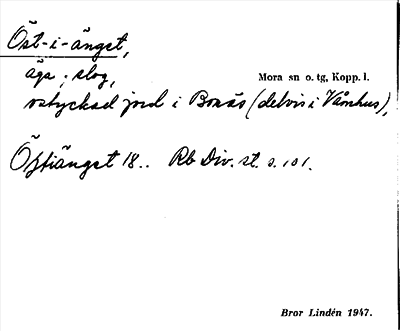 Öst-i-änget,
äga, slog,
Mora sn o. tg, Kopp. l.
ostyckad jord i Bonäs (delvis i Våmhus),
Östiänget 18.. Rb Div. st. s. 101.
Bror Lindén 1947.